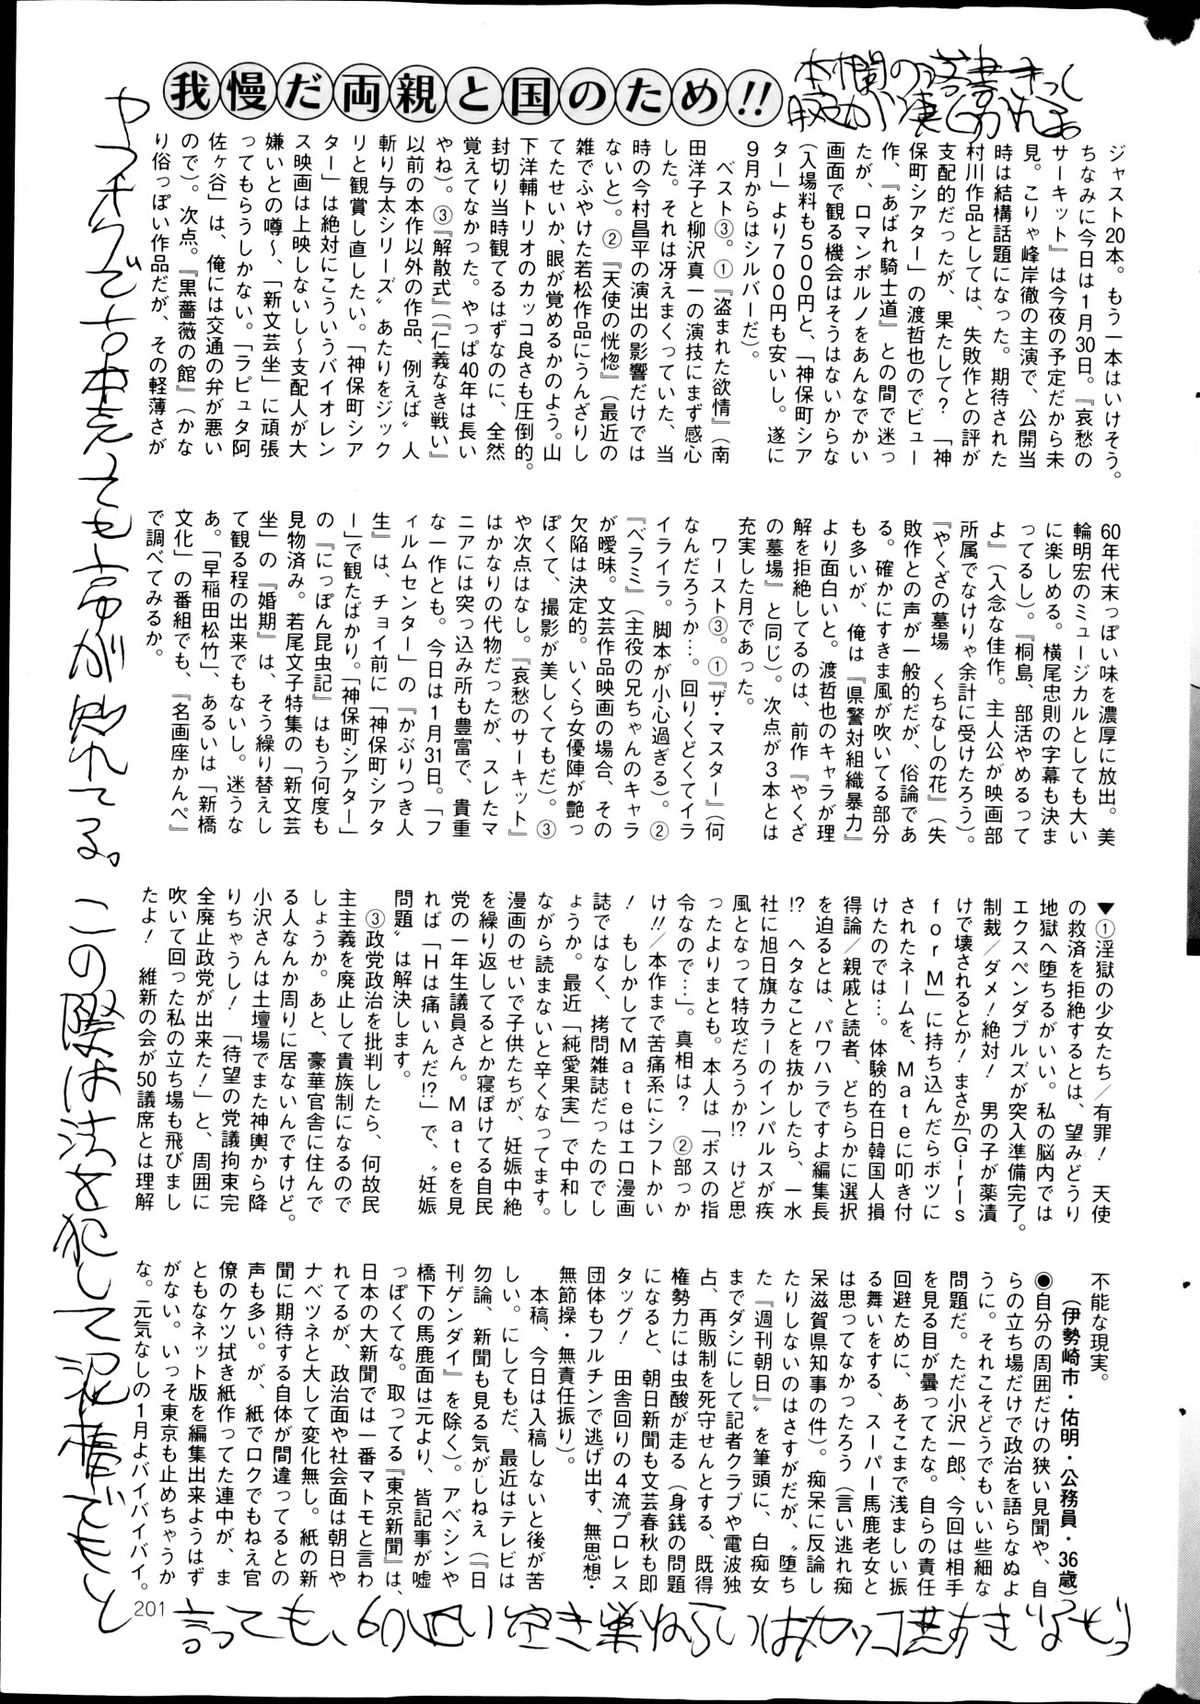 我慢だ両親と国のため!!
ジャスト20本。もう一本はいけそう。
ちなみに今日は1月30日。『哀愁の
サーキット』は今夜の予定だから未
見。こりゃ峰岸徹の主演で、公開当
時は結構話題になった。期待された
村川作品としては、失敗作との評が
支配的だったが、果たして?　「神
保町シアター」の渡哲也のでビュー
作、『あばれ騎士道』との間で迷っ
たが、ロマンポルノをあんなでかい
画面で観る機会はそうはないからな
(入場料も500円と、「神保町シア
ター」より700円も安いし。遂に
9月からはシルバーだ)。
ベスト③。①『盗まれた欲情』(南
田洋子と柳沢真一の演技にまず感心
した。それは冴えまくっていた、当
時の今村昌平の演出の影響だけでは
ないと)。②『天使の恍惚』(最近の
雑でふやけた若松作品にうんざりし
てたせいか、眼が覚めるかのよう。山
下洋輔トリオのカッコ良さも圧倒的。
封切り当時観てるはずなのに、全然
覚えてなかった。やっぱ40年は長い
やね)。③『解散式』(『仁義なき戦い』
以前の本作以外の作品、例えば〝人
斬り与太シリーズ〟あたりをジック
リと観賞し直したい。「神保町シア
ター」は絶対にこういうバイオレン
ス映画は上映しないし〜支配人が大
嫌いとの噂〜、「新文芸坐」に頑張
ってもらうしかない。「ラピュタ阿
佐ヶ谷」は、俺には交通の弁が悪い
ので)。次点。『黒薔薇の館』(かな
り俗っぽい作品だが、その軽薄さが
60年代末っぽい味を濃厚に放出。美
輪明宏のミュージカルとしても大い
に楽しめる。横尾忠則の字幕も決ま
ってるし)。『桐島、部活やめるって
よ』(入念な佳作。主人公が映画部
所属でなけりゃ余計に受けたろう)。
『やくざの墓場　くちなしの花』(失
敗作との声が一般的だが、俗論であ
る。確かにすきま風が吹いてる部分
も多いが、俺は『県警対組織暴力』
より面白いと。渡哲也のキャラが理
解を拒絶してるのは、前作『やくざ
の墓場』と同じ)。次点が3本とは
充実した月であった。
ワースト③。①『ザ・マスター』(何
なんだろうか…。回りくどくてイラ
イライラ。脚本が小心過ぎる)。②
『ベラミ』(主役の兄ちゃんのキャラ
が曖昧。文芸作品映画の場合、その
欠陥は決定的。いくら女優陣が艶っ
ぽくて、撮影が美しくてもだ)。③
や次点はなし。『哀愁のサーキット』
はかなりの代物だったが、スレたマ
ニアには突っ込み所も豊富で、貴重
な一作とも。今日は1月31日。「フ
ィルムセンター」の『かぶりつき人
生』は、チョイ前に「神保町シアタ
ー」で観たばかり。「神保町シアター」
の『にっぽん昆虫記』はもう何度も
見物済み。若尾文子特集の「新文芸
坐」の『婚期』は、そう繰り替えし
て観る程の出来でもないし。迷うな
あ。「早稲田松竹」、あるいは「新橋
文化」の番組でも、『名画座かんぺ』
で調べてみるか。
▼①淫獄の少女たち／有罪!　天使
の救済を拒絶するとは、望みどうり
地獄へ堕ちるがいい。私の脳内では
エクスペンダブルズが突入準備完了。
制裁／ダメ!絶対!　男の子が薬漬
けで壊されるとか!まさか「Girls
forM」に持ち込んだらボツに
されたネームを、Mateに叩き付
けたのでは…。体験的在日韓国人損
得論／親戚と読者、どちらかに選択
を迫るとは、パワハラですよ編集長
!?　ヘタなことを抜かしたら、一水
社に旭日旗カラーのインパルスが疾
風となって特攻だろうか!?　けど思
ったよりまとも。本人は「ボスの指
令なので…」。真相は?　②部っか
け!!／本作まで苦痛系にシフトかい
!　もしかしてMateはエロ漫画
誌ではなく、拷問雑誌だったのでし
ょうか。最近「純愛果実」で中和し
ながら読まないと辛くなってます。
漫画のせいで子供たちが、妊娠中絶
を繰り返してるとか寝ぼけてる自民
党の一年生議員さん。Mateを見
れば「Hは痛いんだ!?」で、〝妊娠
問題〟は解決します。
③政党政治を批判したら、何故民
主主義を廃止して貴族制になるので
しょうか。あと、豪華官舎に住んで
る人なんか周りに居ないんですけど。
小沢さんは土壇場でまた神輿から降
りちゃうし!　「待望の党議拘束完
全廃止政党が出来た!」と、周囲に
吹いて回った私の立ち場も飛びまし
たよ!　維新の会が50議席とは理解
不能な現実。
(伊勢崎市・佑明・公務員・36歳)
●自分の周囲だけの狭い見聞や、自
らの立ち場だけで政治を語らなぬよ
うに。それこそどうでもいい些細な
問題だ。ただ小沢一郎、今回は相手
を見る目が曇ってたな。自らの責任
回避ために、あそこまで浅ましい振
る舞いをする、スーパー馬鹿老女と
は思ってなかったろう(言い逃れ痴
呆滋賀県知事の件)。痴呆に反論し
たりしないのはさすがだが、〝堕ち
た『週刊朝日』〟を筆頭に、白痴女
までダシにして記者クラブや電波独
占、再販制を死守せんとする、既得
権勢力には虫酸が走る(身銭の問題
になると、朝日新聞も文芸春秋も即
タッグ!　田舎回りの4流プロレス
団体もフルチンで逃げ出す、無思想・
無節操・無責任振り)。
本稿、今日は入稿しないと後が苦
しい。にしてもだ、最近はテレビは
勿論、新聞も見る気がしねえ(『日
刊ゲンダイ』を除く)。アベシンや
橋下の馬鹿面は元より、皆記事が嘘
っぽくてな。取ってる『東京新聞』は、
日本の大新聞では一番マトモと言わ
れてるが、政治面や社会面は朝日や
ナベツネと大して変化無し。紙の新
聞に期待する自体が間違ってるとの
声も多い。が、紙でロクでもねえ官
僚のケツ拭き紙作ってた連中が、ま
ともなネット版を編集出来ようはず
がない。いっそ東京も止めちゃうか
な。元気なしの1月よバイバイバイ。
201
この際は法を犯して泥棒でもと
言っても、60近い空き巣ねらいはカッコ悪すぎだなぞっ